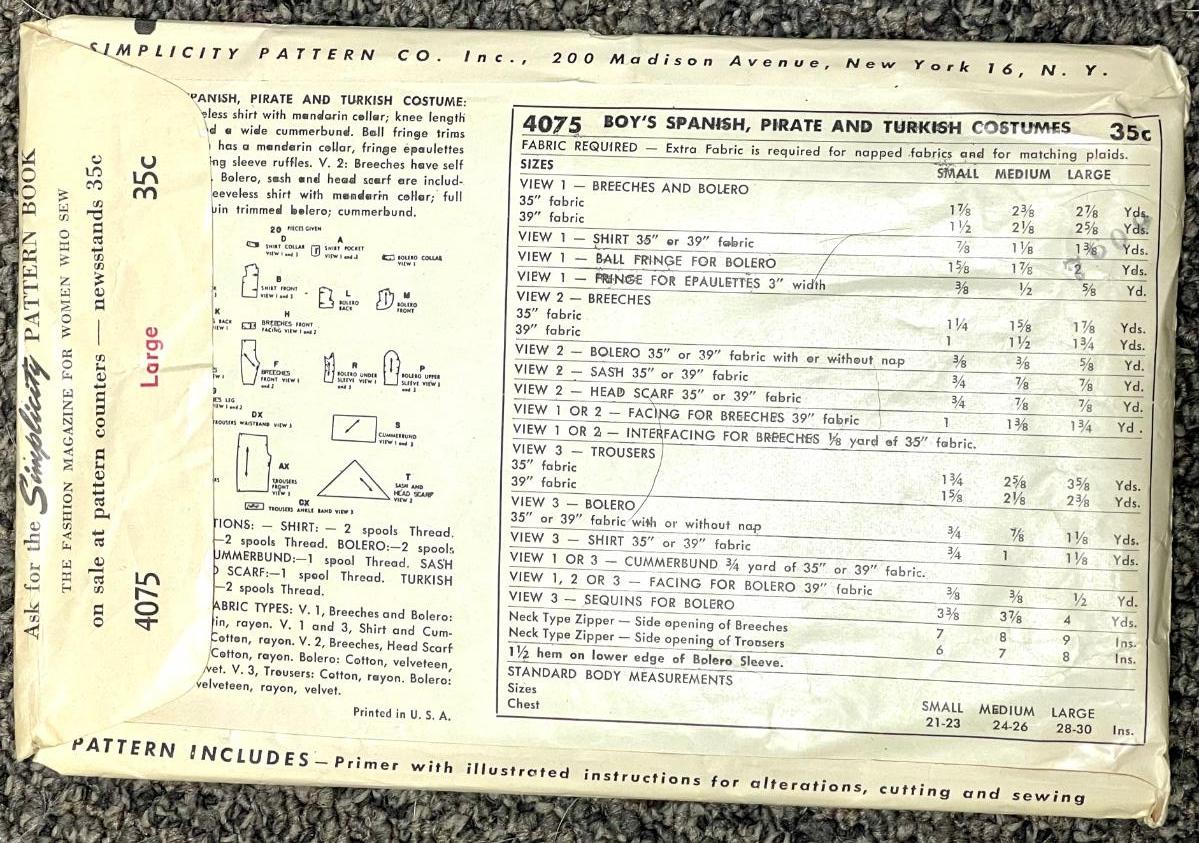 SIMPLICITY PATTERN CO. Inc., 200 Madison Avenue, New York 16, N. Y.
Ask for the Simplicity PATTERN BOOK
THE FASHION MAGAZINE FOR WOMEN WHO SEW
on sale at pattern counters — newsstands 35c
4075 Large 35c
PANISH, PIRATE AND TURKISH COSTUME:
eless shirt with mandarin collar; knee length
d a wide cummerbund. Ball fringe trims
has a mandarin collar, fringe epaulettes
ng sleeve ruffles. V. 2: Breeches have self
. Bolero, sash and head scarf are includ-
eeveless shirt with mandarin collar; full
uin trimmed bolero; cummerbund.
20 PIECES GIVEN
D SHIRT COLLAR VIEW 1 and 3
A SHIRT POCKET VIEW 1 and 3
BOLERO COLLAR VIEW 1
B SHIRT FRONT VIEW 1 and 3
L BOLERO BACK
M BOLERO FRONT
K BACK VIEW 1
H BREECHES FRONT FACING VIEW 1 and 2
F BREECHES FRONT VIEW 1 and 2
R BOLERO UNDER SLEEVE VIEW 1 and 3
P BOLERO UPPER SLEEVE VIEW 1 and 3
ES LEG
DX TROUSERS WAISTBAND VIEW 3
S CUMMERBUND VIEW 1 and 3
AX TROUSERS FRONT VIEW 3
T SASH AND HEAD SCARF VIEW 2
CX TROUSERS ANKLE BAND VIEW 3
TIONS: — SHIRT: — 2 spools Thread.
—2 spools Thread. BOLERO:—2 spools
UMMERBUND:—1 spool Thread. SASH
D SCARF:—1 spool Thread. TURKISH
—2 spools Thread.
ABRIC TYPES: V. 1, Breeches and Bolero:
in, rayon. V. 1 and 3, Shirt and Cum-
Cotton, rayon. V. 2, Breeches, Head Scarf
Cotton, rayon. Bolero: Cotton, velveteen,
vet. V. 3, Trousers: Cotton, rayon. Bolero:
velveteen, rayon, velvet.
Printed in U. S. A.
4075 BOY'S SPANISH, PIRATE AND TURKISH COSTUMES 35c
FABRIC REQUIRED — Extra Fabric is required for napped fabrics and for matching plaids.
SIZES SMALL MEDIUM LARGE
VIEW 1 — BREECHES AND BOLERO
35" fabric 1⅞ 2⅜ 2⅞ Yds.
39" fabric 1½ 2⅛ 2⅝ Yds.
VIEW 1 — SHIRT 35" or 39" fabric ⅞ 1⅛ 1⅜ Yds.
VIEW 1 — BALL FRINGE FOR BOLERO 1⅝ 1⅞ 2 Yds.
VIEW 1 — FRINGE FOR EPAULETTES 3" width ⅜ ½ ⅝ Yd.
VIEW 2 — BREECHES
35" fabric 1¼ 1⅝ 1⅞ Yds.
39" fabric 1 1½ 1¾ Yds.
VIEW 2 — BOLERO 35" or 39" fabric with or without nap ⅜ ⅜ ⅝ Yd.
VIEW 2 — SASH 35" or 39" fabric ¾ ⅞ ⅞ Yd.
VIEW 2 — HEAD SCARF 35" or 39" fabric ¾ ⅞ ⅞ Yd.
VIEW 1 OR 2 — FACING FOR BREECHES 39" fabric 1 1⅜ 1¾ Yd.
VIEW 1 OR 2 — INTERFACING FOR BREECHES ⅛ yard of 35" fabric.
VIEW 3 — TROUSERS
35" fabric 1¾ 2⅝ 3⅝ Yds.
39" fabric 1⅝ 2⅛ 2⅜ Yds.
VIEW 3 — BOLERO
35" or 39" fabric with or without nap ¾ ⅞ 1⅛ Yds.
VIEW 3 — SHIRT 35" or 39" fabric ¾ 1 1⅛ Yds.
VIEW 1 OR 3 — CUMMERBUND ¾ yard of 35" or 39" fabric.
VIEW 1, 2 OR 3 — FACING FOR BOLERO 39" fabric ⅜ ⅜ ½ Yd.
VIEW 3 — SEQUINS FOR BOLERO 3⅜ 3⅞ 4 Yds.
Neck Type Zipper — Side opening of Breeches 7 8 9 Ins.
Neck Type Zipper — Side opening of Trousers 6 7 8 Ins.
1½ hem on lower edge of Bolero Sleeve.
STANDARD BODY MEASUREMENTS
Sizes SMALL MEDIUM LARGE
Chest 21-23 24-26 28-30 Ins.
PATTERN INCLUDES—Primer with illustrated instructions for alterations, cutting and sewing